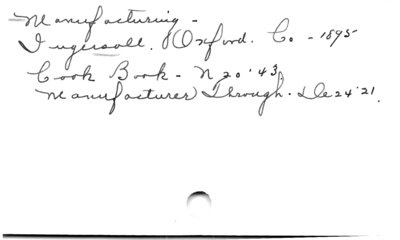 Manufacturing -
Ingersoll. Oxford. Co. - 1895
Cook Book - N 20 '43
Manufacturer Through. De 24 '21.